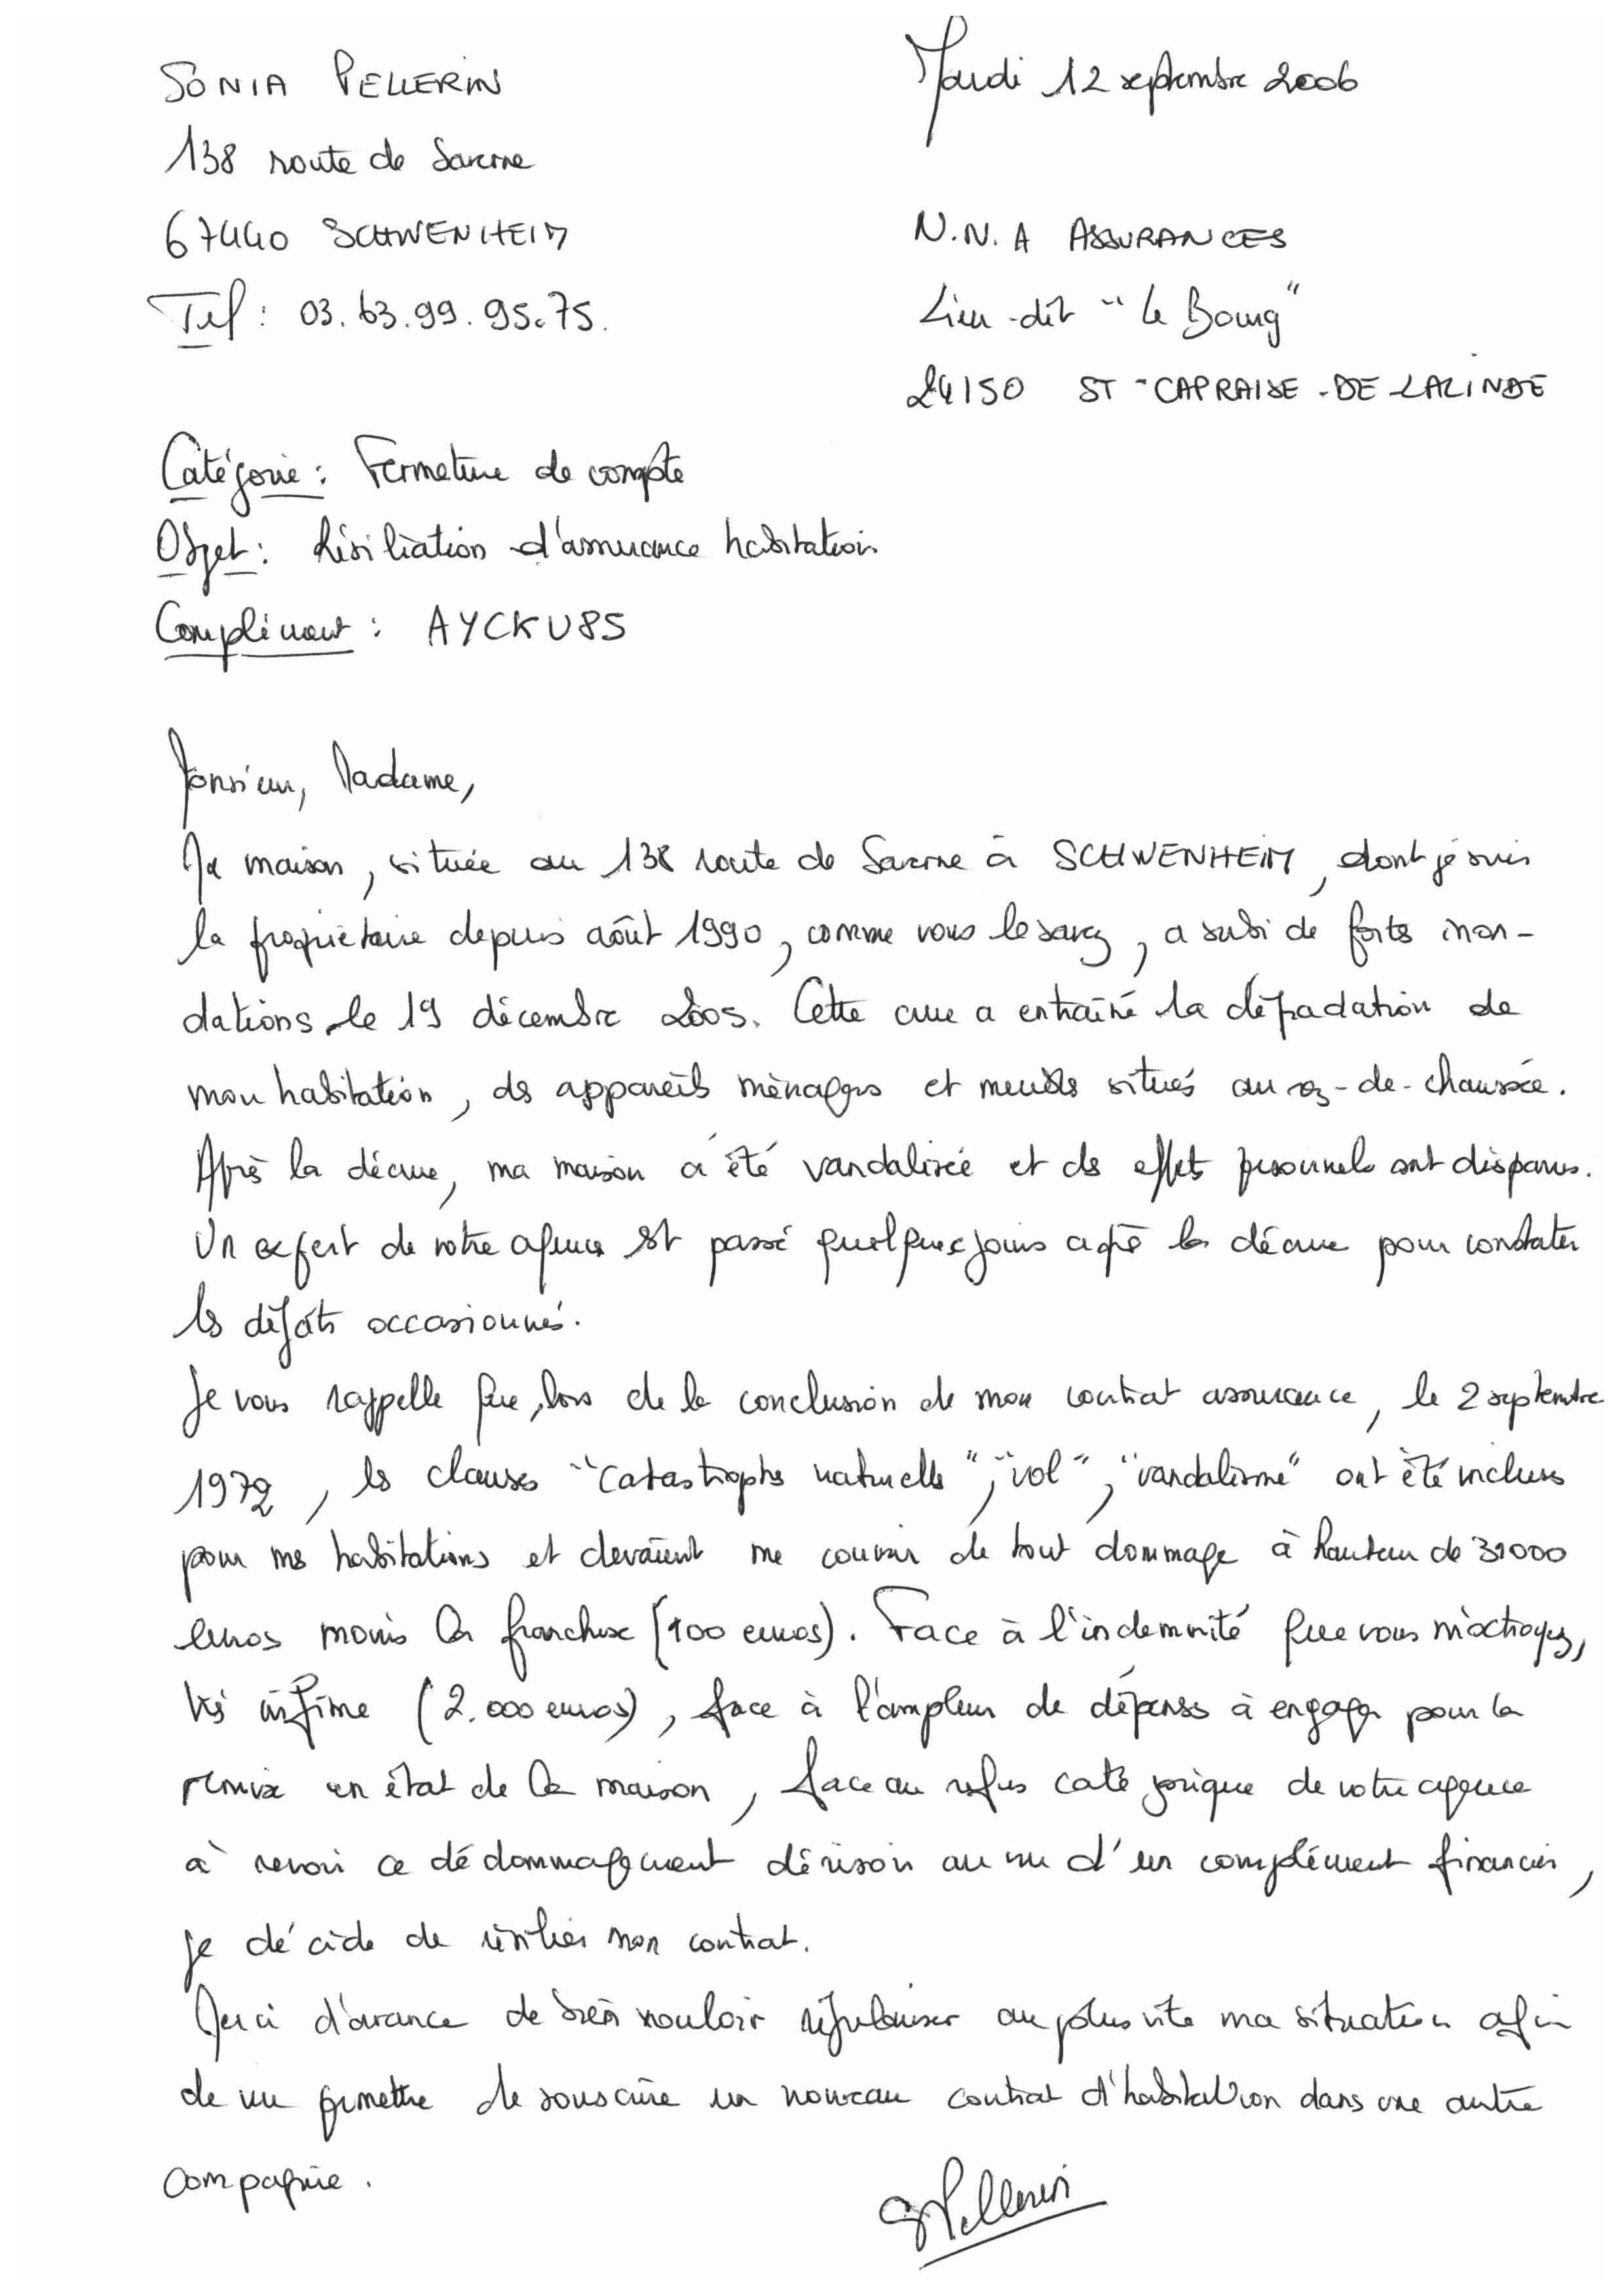 SONIA PELLERIN
Mardi 12 septembre 2006
138 route de Saverne
67440 SCHWENHEIM
N.N.A ASSURANCES
Tel : 03.63.99.95.75.
Lieu-dit "Le Bourg"
24150 ST-CAPRAISE-DE-LALINDE
Catégorie : Fermeture de compte
Objet : Résiliation d'assurance habitation
Complément : AYCKU85
Monsieur, Madame,
Ma maison, située au 138 route de Saverne à SCHWENHEIM, dont je suis
la propriétaire depuis août 1990, comme vous le savez, a subi de fortes inon-
dations, le 19 décembre 2005. Cette crue a entraîné la dégradation de
mon habitation, des appareils ménagers et meubles situés au rez-de-chaussée.
Après la décrue, ma maison a été vandalisée et des effets personnels ont disparus.
Un expert de votre agence est passé quelques jours après la décrue pour constater
les dégâts occasionnés.
Je vous rappelle que, lors de la conclusion de mon contrat assurance, le 2 septembre
1972, les clauses "catastrophes naturelles", "vol", "vandalisme" ont été inclues
pour mes habitations et devaient me couvrir de tout dommage à hauteur de 31000
euros moins la franchise (100 euros). Face à l'indemnité que vous m'octroyez,
très infime (2.000 euros), face à l'ampleur de dépenses à engager pour la
remise en état de la maison, face au refus catégorique de votre agence
à revoir ce dédommagement dérisoir au vu d'un complément financier,
je décide de résilier mon contrat.
Merci d'avance de bien vouloir régulariser au plus vite ma situation afin
de me permettre de souscrire un nouveau contrat d'habitation dans une autre
compagnie.
SPellerin